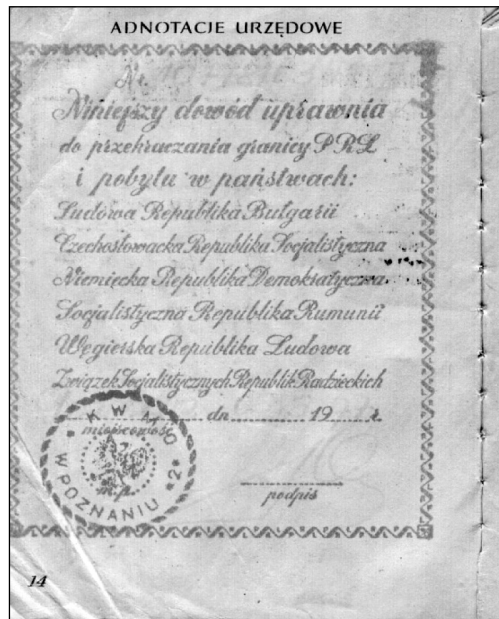 ADNOTACJE URZĘDOWE
Nr
Niniejszy dowód uprawnia
do przekraczania granicy PRL
i pobytu w państwach:
Ludowa Republika Bułgarii
Czechosłowacka Republika Socjalistyczna
Niemiecka Republika Demokratyczna
Socjalistyczna Republika Rumunii
Węgierska Republika Ludowa
Związek Socjalistycznych Republik Radzieckich
dn 19 r.
miejscowość
K W M O
W POZNANIU
2
m.p.
podpis
14